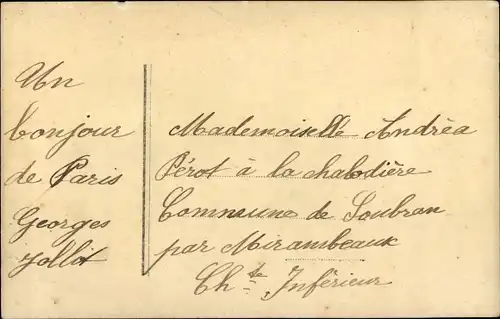 Un
bonjour
de Paris
Georges
Jollit
Mademoiselle Andrèa
Pérot à la chabodière
Commune de Soubran
par Mirambeaux
Ch.te Inférieur